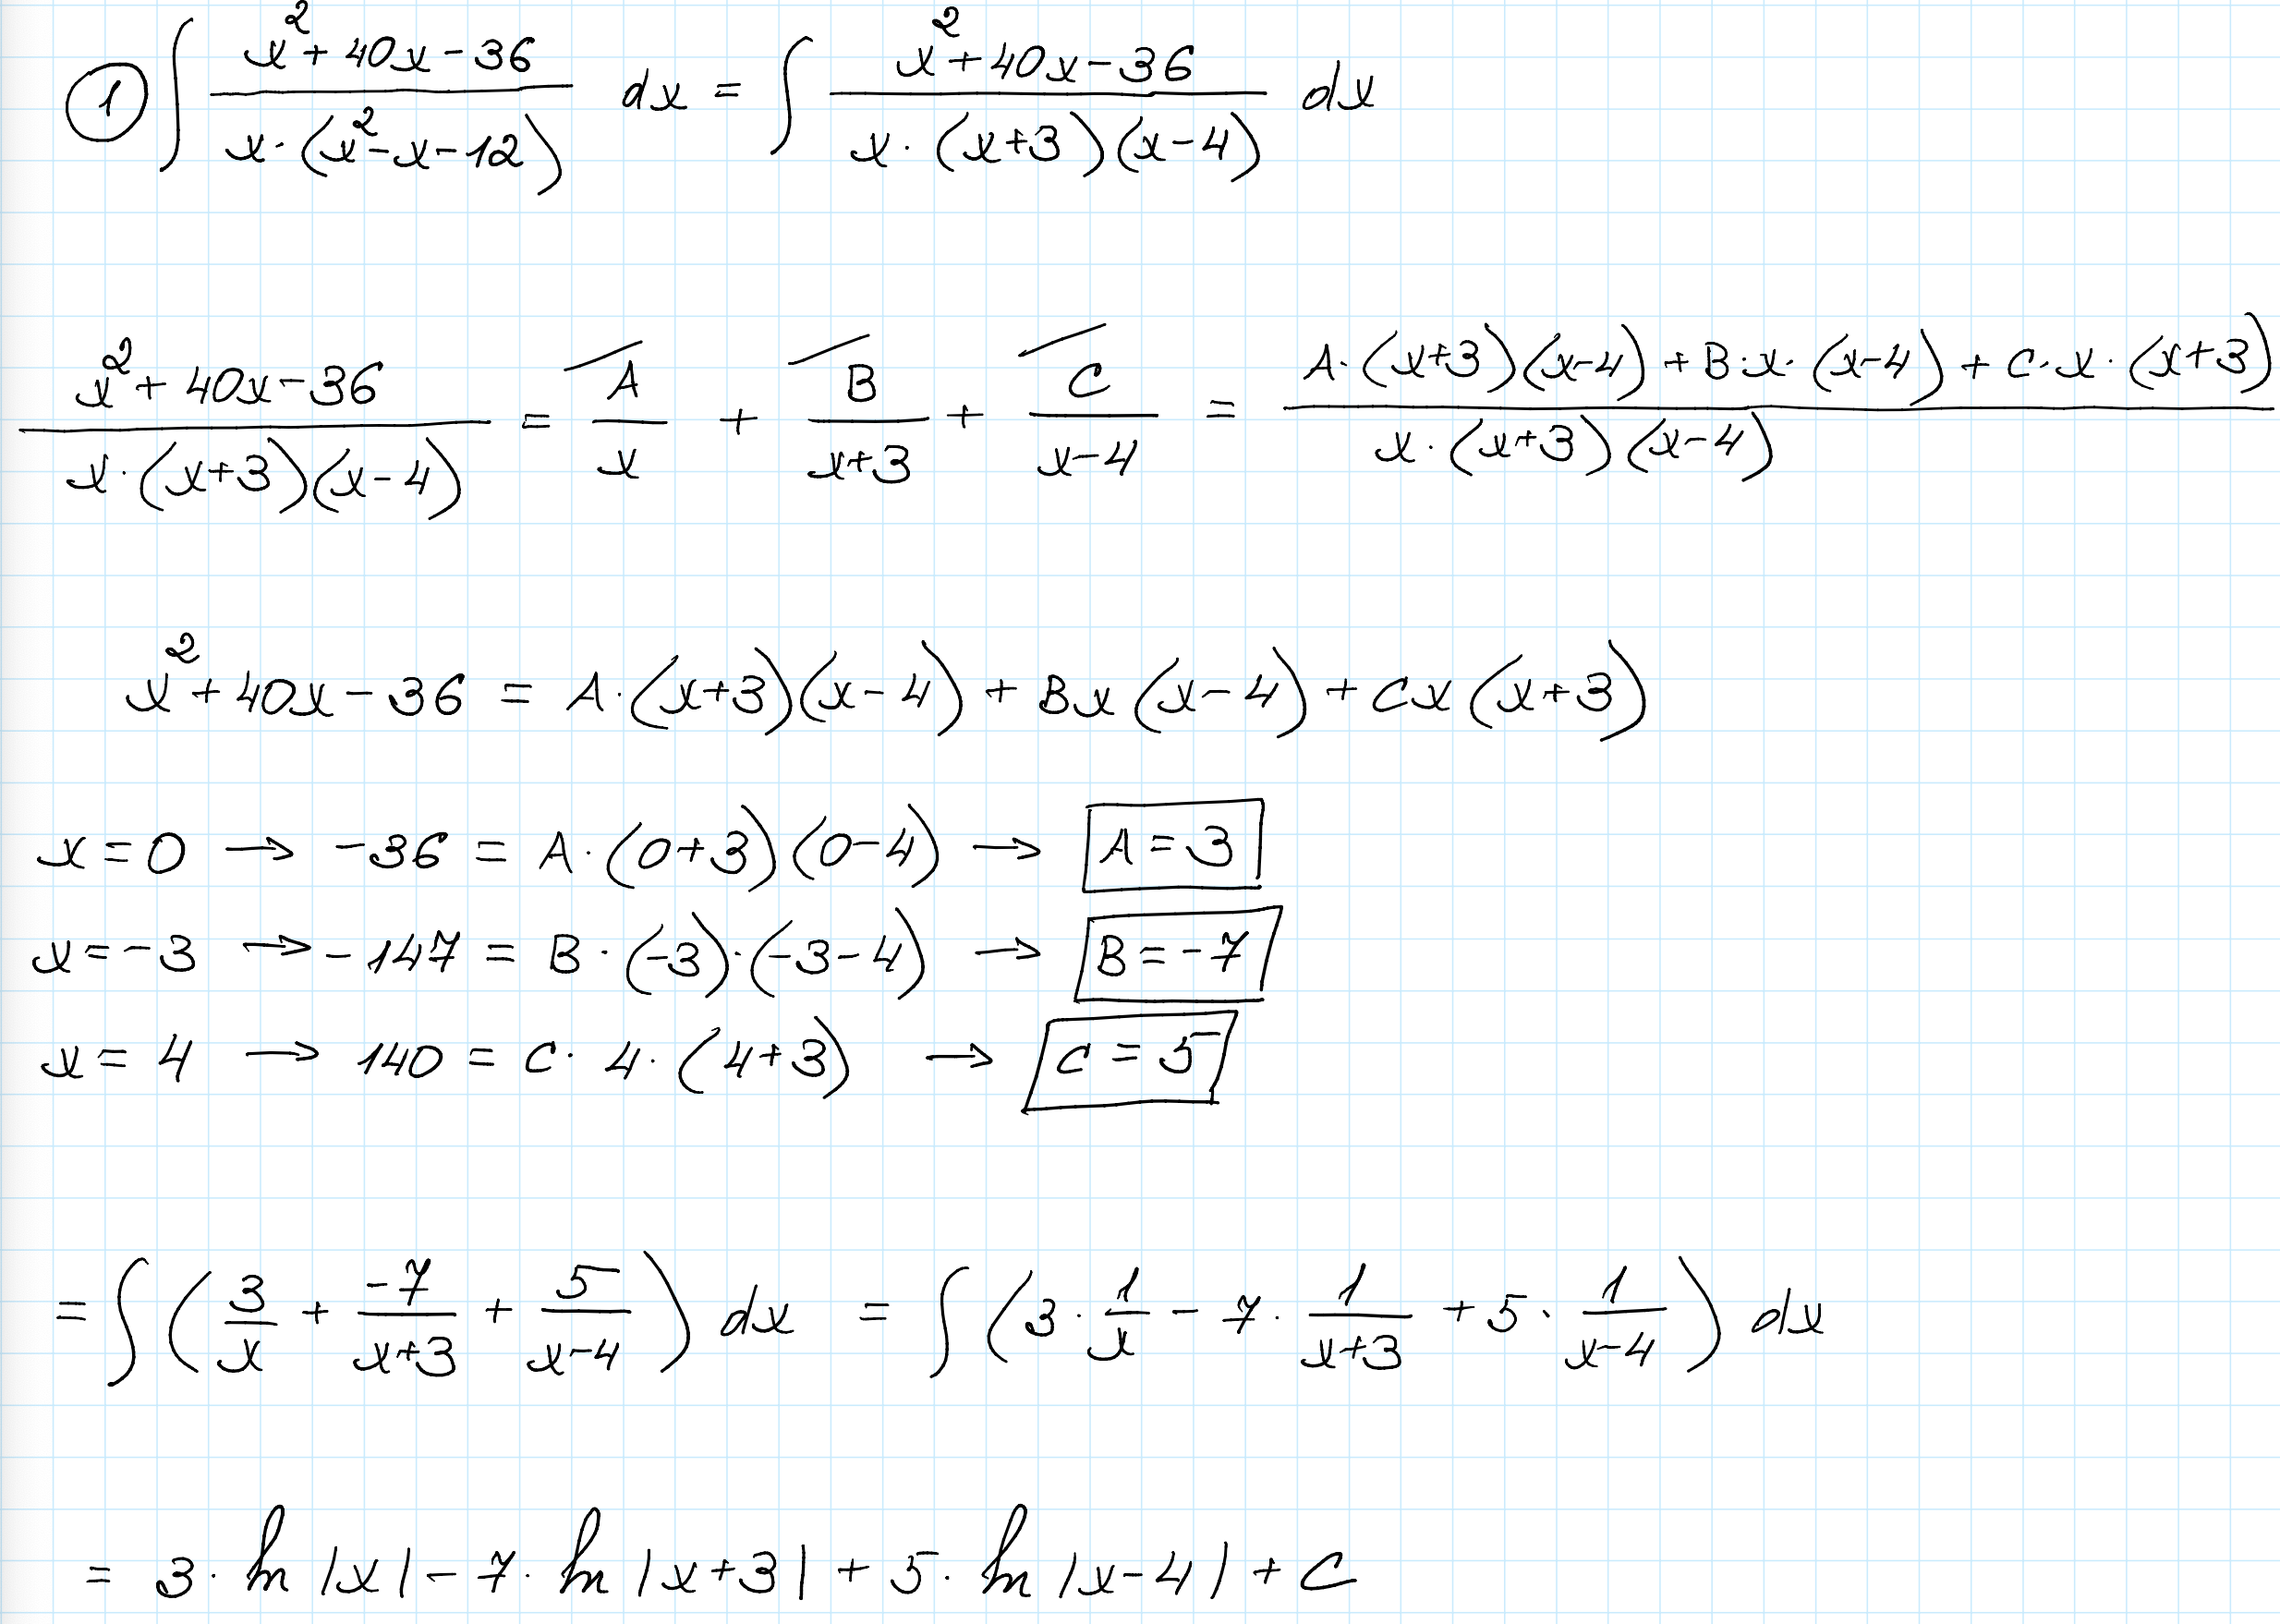 ① ∫ (x² + 40x - 36) / (x · (x² - x - 12)) dx = ∫ (x² + 40x - 36) / (x · (x+3)(x-4)) dx
(x² + 40x - 36) / (x · (x+3)(x-4)) = A/x + B/(x+3) + C/(x-4) = (A · (x+3)(x-4) + B · x · (x-4) + C · x · (x+3)) / (x · (x+3)(x-4))
x² + 40x - 36 = A · (x+3)(x-4) + Bx(x-4) + Cx(x+3)
x = 0 → -36 = A · (0+3)(0-4) → A = 3
x = -3 → -147 = B · (-3) · (-3-4) → B = -7
x = 4 → 140 = C · 4 · (4+3) → C = 5
= ∫ (3/x + -7/(x+3) + 5/(x-4)) dx = ∫ (3 · 1/x - 7 · 1/(x+3) + 5 · 1/(x-4)) dx
= 3 · ln |x| - 7 · ln |x+3| + 5 · ln |x-4| + C